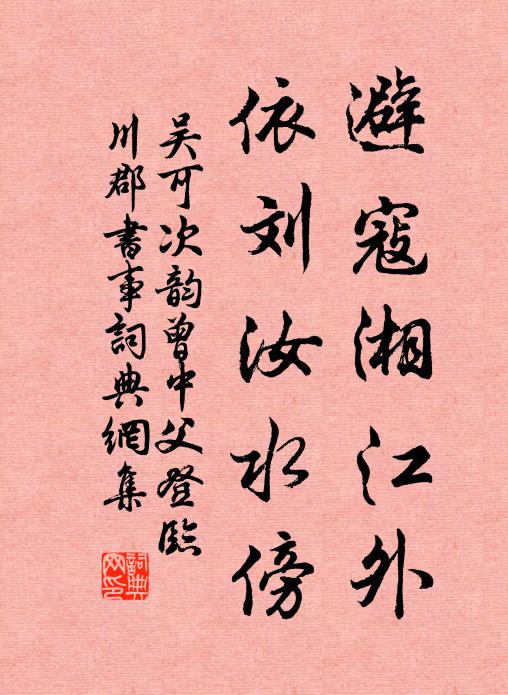 避寇湘江外
依刘汝水傍
吴可次韵曾中父登临
川郡书事詞典網集
詞典网印